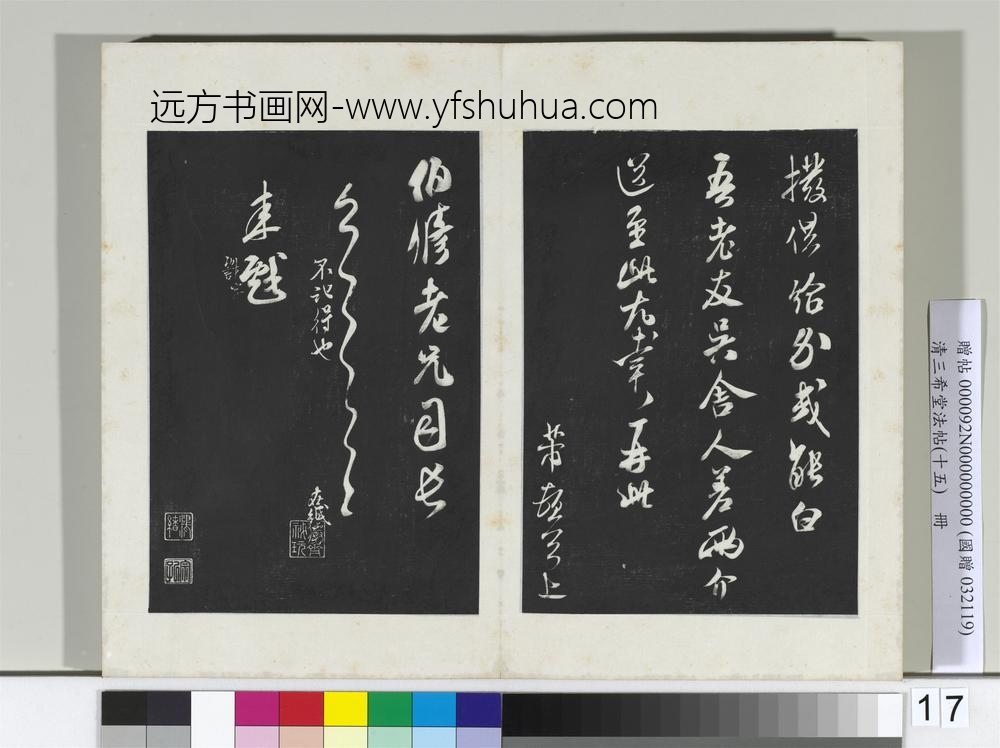 远方书画网-www.yfshuhua.com
撥供給分或能白
吾老友吳舍人差兩介
送至此尤幸再此
芾頓首上
伯脩老兄司長
不記得也
來戲
贈帖 000092N000000000 (國贈 032119)
清三希堂法帖(十五) 冊
17